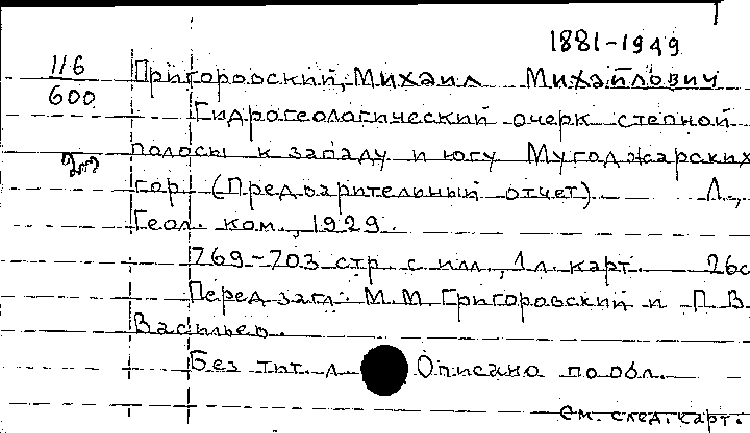 1881-1949
116 Григоровский, Михаил Михайлович
600
Гидрогеологический очерк степной
полосы к западу и югу Мугоджарских
гор. (Предварительный отчет) Л.,
Геол. ком., 1929.
769-703 стр. с илл., 1 л. карт. 26с
Перед загл.: М.М. Григоровский и П.В.
Васильев.
Без тит. л. Описано по обл.
См. след. карт.